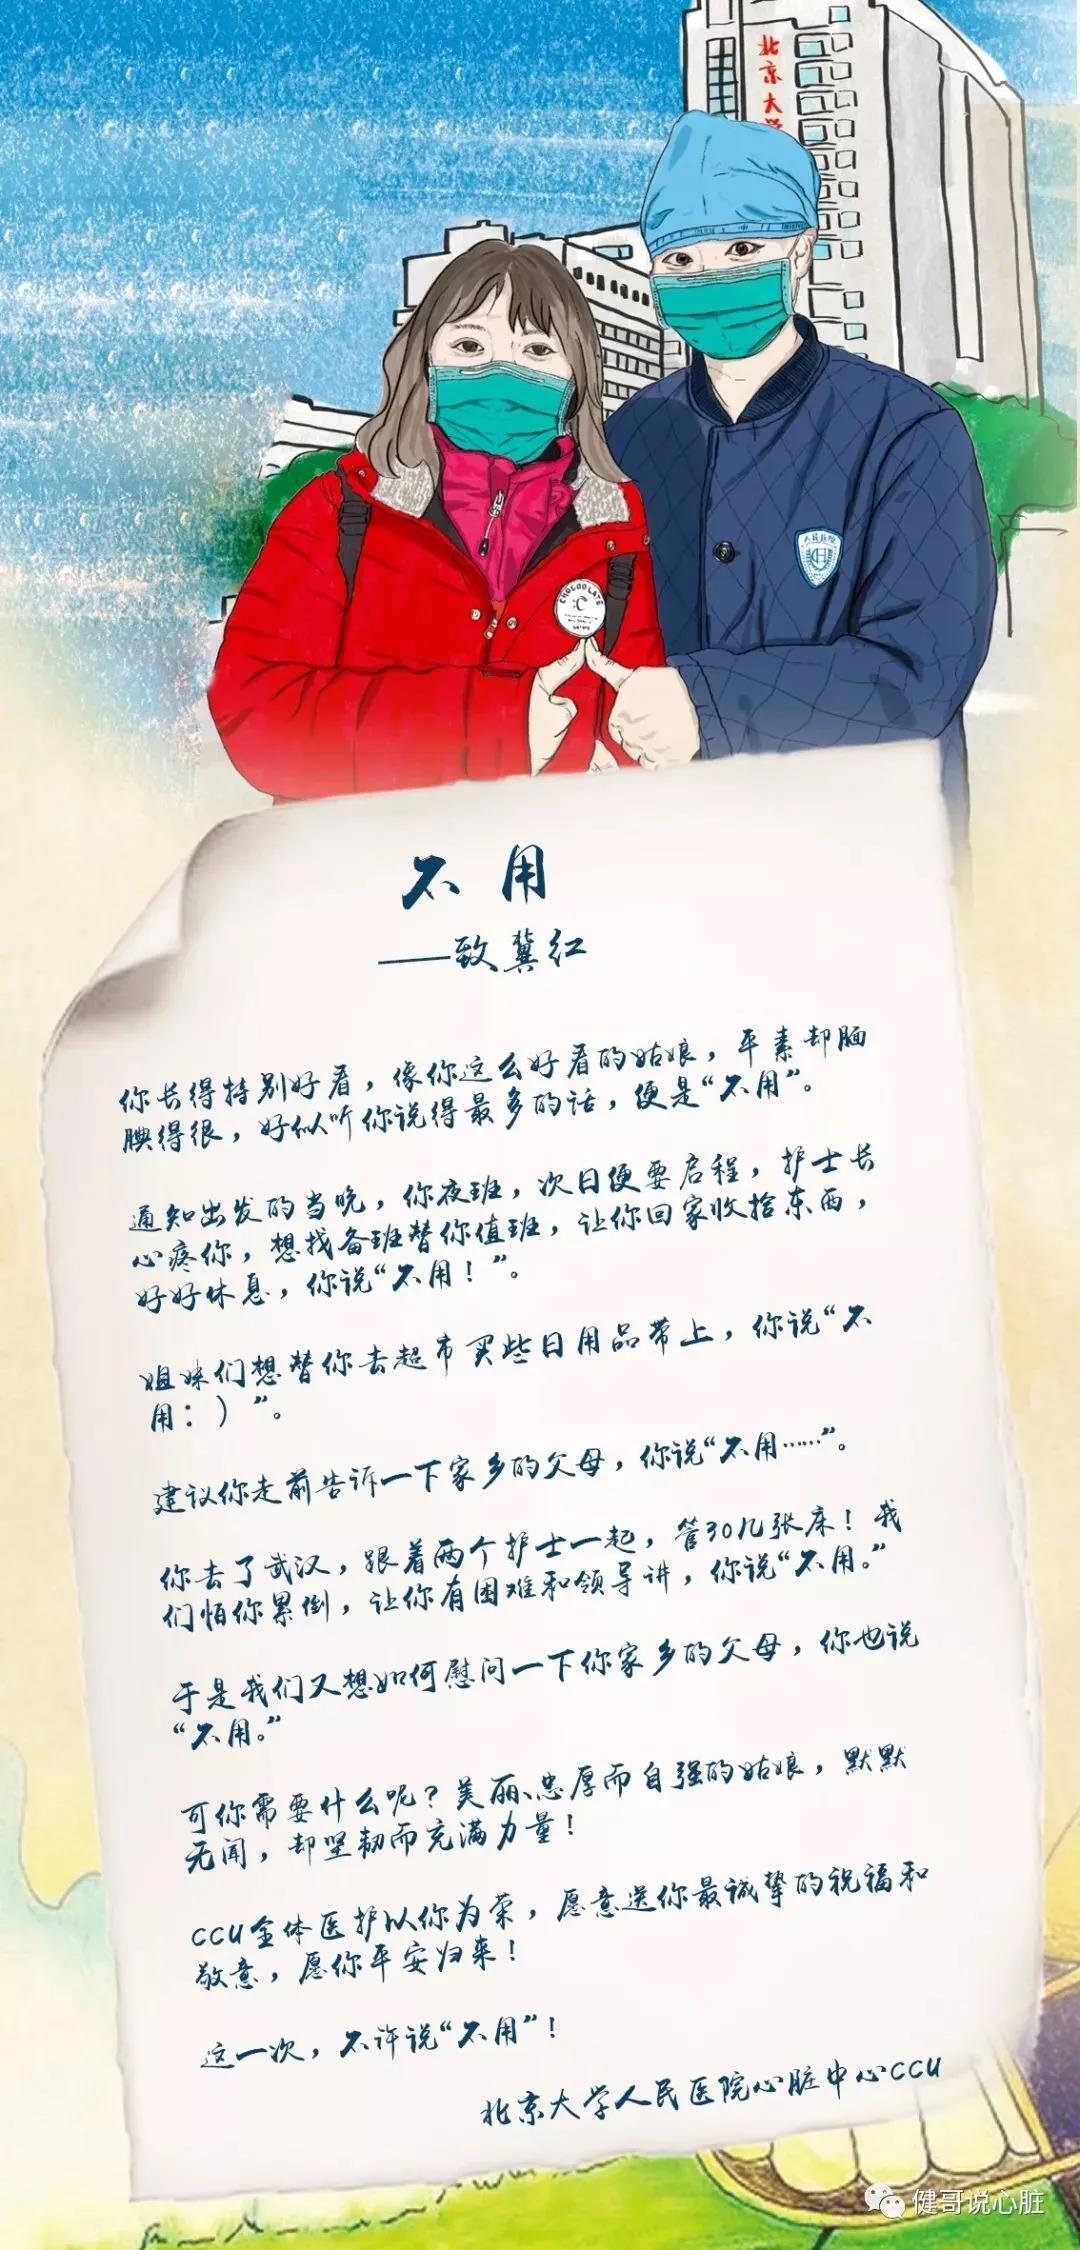 北京大学
人民医院
CHOCOOLATE
不用
——致冀红
你长得特别好看，像你这么好看的姑娘，平素却腼
腆得很，好似听你说得最多的话，便是“不用”。
通知出发的当晚，你夜班，次日便要启程，护士长
心疼你，想找备班替你值班，让你回家收拾东西，
好好休息，你说“不用！”。
姐妹们想替你去超市买些日用品带上，你说“不
用：）”。
建议你走前告诉一下家乡的父母，你说“不用……”。
你去了武汉，跟着两个护士一起，管30几张床！我
们怕你累倒，让你有困难和领导讲，你说“不用。”
于是我们又想如何慰问一下你家乡的父母，你也说
“不用。”
可你需要什么呢？美丽、忠厚而自强的姑娘，默默
无闻，却坚韧而充满力量！
CCU全体医护以你为荣，愿意送你最诚挚的祝福和
敬意，愿你平安归来！
这一次，不许说“不用”！
北京大学人民医院心脏中心CCU
健哥说心脏